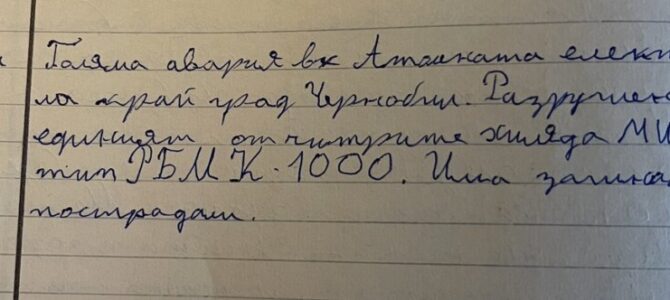 Голяма авария в Атомната елек
ла край град Чернобил. Разрушен
единият от читрите хиляда
тип РБМК-1000. Има загина
пострадали.